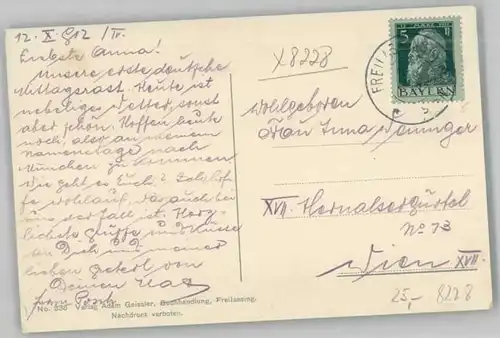 12. X. 912 /IV.
Liebste Anna!
Unsere erste deutsche
Mittagsrast. Heute ist
nebeliges Wetter, sonst
aber schön. Hoffen heute
noch, also an meinem
Namenstage nach
München zu kommen
Wie geht es Euch? Ich hof-
fe wohlauf, was auch bei
uns der Fall ist. Herz-
lichste Grüße und Küsse
an Dich und meinen
lieben von
Deinem Max
No. 330 Verlag Adam Geissler, Buchhandlung, Freilassing.
Nachdruck verboten.
X8228
5
BAYERN
FREILA
Wohlgeboren
Frau Anna
XVII. Hernalsergürtel
No 73
Wien XVII.
25,- 8228